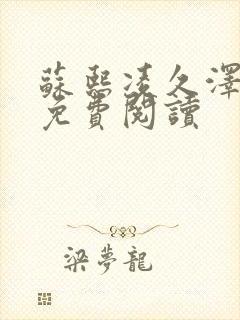 蘇熙凌久澤
免費閱讀
梁夢龍